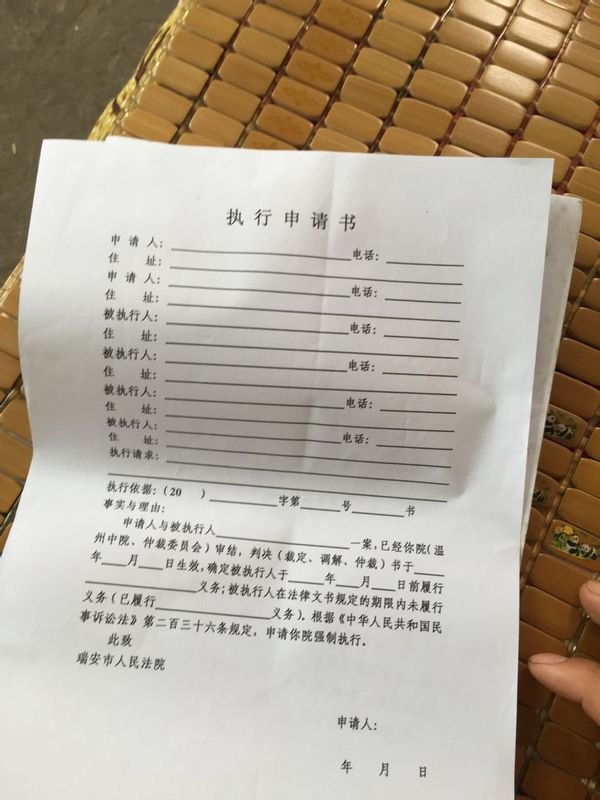 执行申请书
申请人：____________电话：______
住　址：____________________
申请人：____________电话：______
住　址：____________________
被执行人：____________电话：______
住　址：____________________
被执行人：____________电话：______
住　址：____________________
被执行人：____________电话：______
住　址：____________________
被执行人：____________电话：______
住　址：____________________
执行请求：____________________
执行依据：(20　)________字第____号________书
事实与理由：
申请人与被执行人____________一案，已经你院(温
州中院、仲裁委员会)审结，判决(裁定、调解、仲裁)书于____
年____月____日生效，确定被执行人于____年____月____日前履行
____________义务；被执行人在法律文书规定的期限内未履行
义务(已履行____________义务)。根据《中华人民共和国民
事诉讼法》第二百三十六条规定，申请你院强制执行。
此致
瑞安市人民法院
申请人：
年　月　日